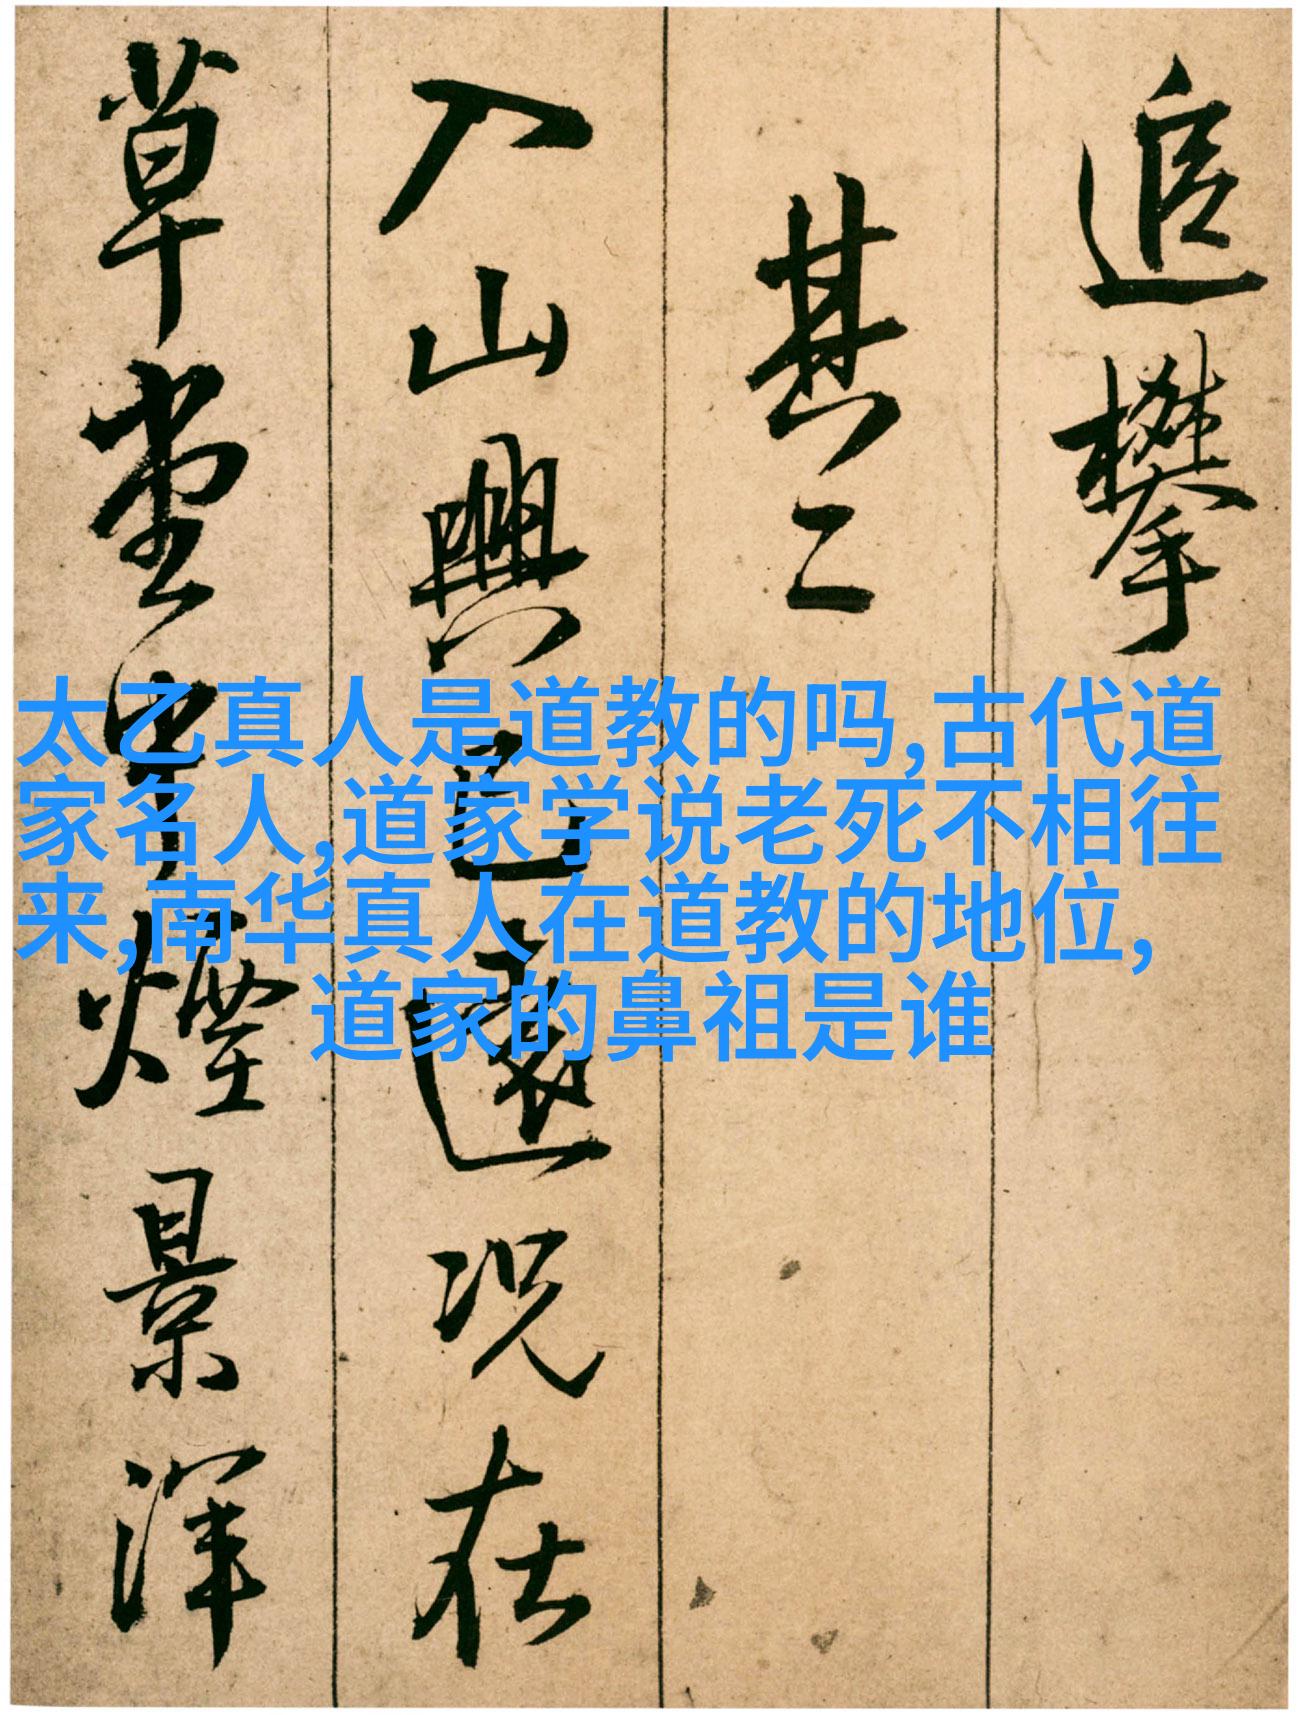 追攀
其二
入山興已遠況在
草堂中煙景渾
太乙真人是道教的吗,古代道
家名人,道家学说老死不相往
来,南华真人在道教的地位,
道家的鼻祖是谁